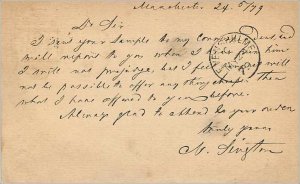 Manchester 24. 5/79
Dr Sir
I sent your sample to my
will report to you when I him
I will not prejudge, but I feel will
not be possible to offer any thing cheaper than
what I have offered to you before.
Always glad to attend to your orders
truly yours